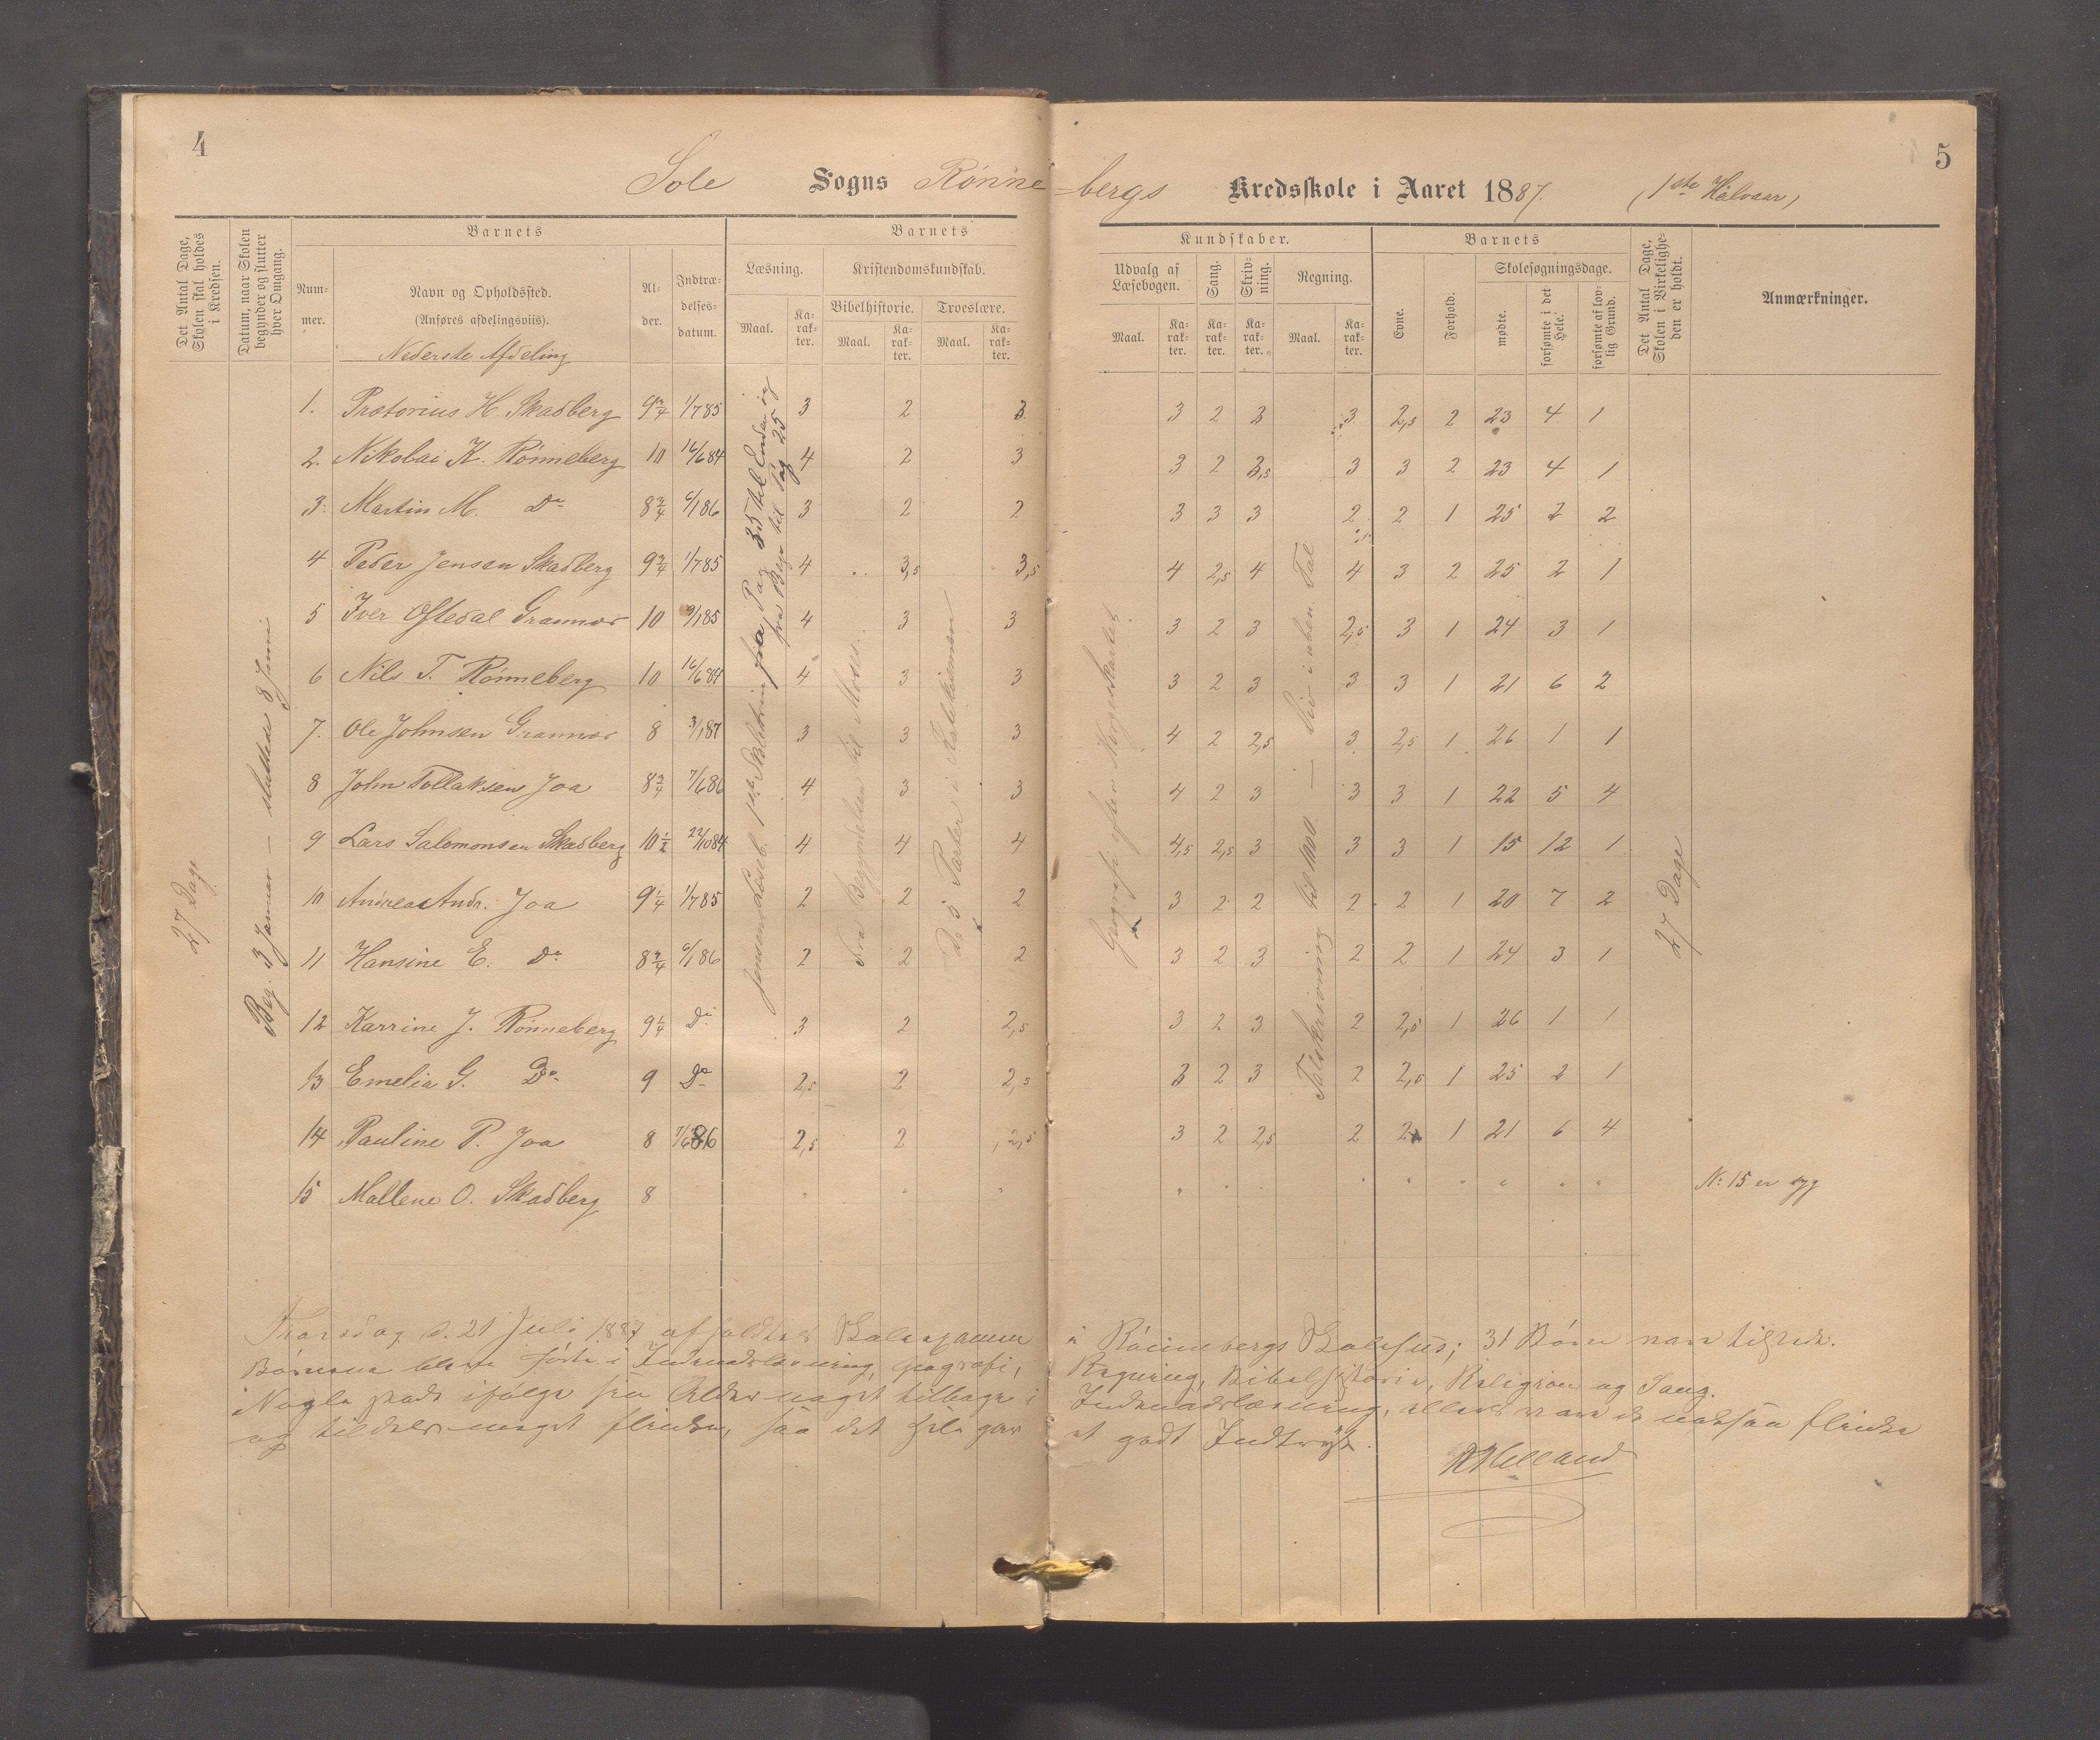 4
5
Sole Sogns Rønne-bergs Kredsskole i Aaret 1887. (1ste Halvaar)
Det Antal Dage, Skolen skal holdes i Kredsen.
Datum, naar Skolen begynder og slutter hver Omgang.
Barnets
Nummer.
Navn og Opholdssted.
(Anføres afdelingsviis).
Nederste Afdeling
Alder.
Indtrædelsesdatum.
Barnets
Kundskaber.
Læsning.
Maal.
Karakter.
Kristendomskundskab.
Bibelhistorie.
Maal.
Karakter.
Troeslære.
Maal.
Karakter.
Udvalg af Læsebogen.
Maal.
Karakter.
Sang.
Karakter.
Skrivning.
Karakter.
Regning.
Maal.
Karakter.
Barnets
Evne.
Forhold.
Skolesøgningsdage.
mødte.
forsømte i det Hele.
forsømte af lovlig Grund.
Det Antal Dage, Skolen i Virkeligheden er holdt.
Anmærkninger.
27 Dage
Beg. 3 Januar — sluttede 8 Juni
fra Pag 35 til Enden og
fra Beg. til Pag 25
Fra Begyndelsen til Moses.
De 3 Parter i Katekismen
Geografi efter Norgeskartet
Talskrivning til 1000 —
27 Dage
1. Prætorius H. Skadberg 9 3/4 1/7 85 3 2 3 3 2 3 3 2,5 2 23 4 1
2. Nikolai K. Rønneberg 10 16/6 84 4 2 3 3 2 3,5 3 3 2 23 4 1
3. Martin M. Do 8 3/4 6/1 86 3 2 2 3 3 3 2 2 1 25 2 2
4 Peder Jensen Skadberg 9 3/4 1/7 85 4 3,5 3,5 4 2,5 4 4 3 2 25 2 1
5 Iver Oftedal Grannes 10 9/1 85 4 3 3 3 2 3 2,5 3 1 24 3 1
6 Nils T. Rønneberg 10 16/6 84 4 3 3 3 2 3 3 3 1 21 6 2
7. Ole Johnsen Grannes 8 3/1 87 3 3 3 4 2 2,5 3 2,5 1 26 1 1
8 John Tollaksen Joa 8 3/4 7/6 86 4 3 3 4 2 3 3 3 1 22 5 4
9 Lars Salomonsen Skadberg 10 1/2 22/10 84 4 4 4 4,5 2,5 3 3 3 1 15 12 1
10 Andreas Andr. Joa 9 1/4 1/7 85 2 2 2 3 2 2 2 2 1 20 7 2
11 Hansine E. Do 8 3/4 6/1 86 2 2 2 3 2 3 2 2 1 24 3 1
12 Karrine J. Rønneberg 9 1/4 Do 3 2 2,5 3 2 3 2 2,5 1 26 1 1
13 Emelia G. Do 9 Do 2,5 2 2,5 3 2 3 2 2,5 1 25 2 1
14 Pauline P. Joa 8 7/6 86 2,5 2 2,5 3 2 2,5 2 2 1 21 6 4
15 Mallene O. Skadberg 8 " " " " " " " " " " " " N: 15 er syg
Thorsdag d. 21 Juli 1887 afholdtes Skoleexamen i Rønnebergs Skolehus; 31 Børn var tilstede.
Børnene bleve hørte i Indenadslæsning, Geografi, Regning, Bibelhistorie, Religion og Sang.
Nogle stode ifølge sin Alder noget tilbage i Indenadslæsning, ellers vare de ogsaa flinke
og tildels meget flinke, saa det hele gav et godt Indtryk.